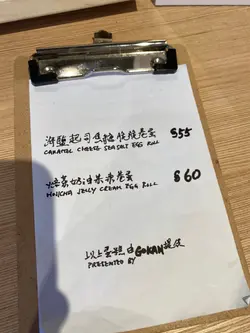 海鹽起司焦糖脆脆卷蛋 $55
CARAMEL CHEESE SEASALT EGG ROLL
奶油果凍卷蛋 $60
HOUJICHA JELLY CREAM EGG ROLL
以上蛋卷由GOKAN提供
PRESENTED BY